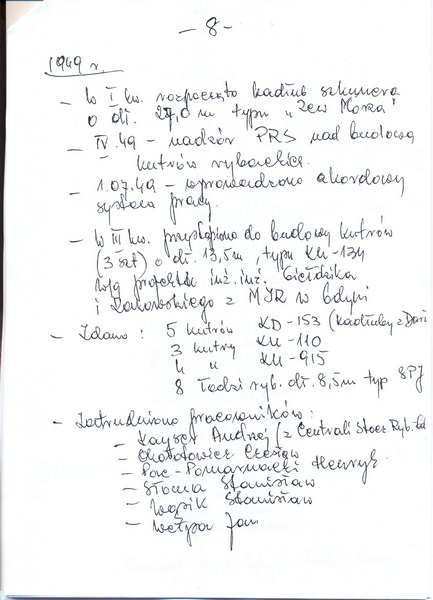 - 8 -
1949 r.
- W I kw. rozpoczęto kadłub szkunera
o dł. 27,0 m typu "Zew Morza"
- IV.49 - nadzór PRS nad budową
kutrów rybackich.
- 1.07.49 - wprowadzono akordowy
system pracy.
- W III kw. przystąpiono do budowy kutrów
(3 szt) o dł. 13,5m, typu KU-134
wg projektu inż. inż. Giełdzika
i z MIR w Gdyni
- Zdano: 5 kutrów KD-153 (kadłuby z
3 kutry KU-110
4 " KU-915
8 łodzi ryb. dł. 8,5m typ
- Zatrudniono pracowników:
- Kayser Andrzej (z Centrali Stocz. Ryb.
- Czesław
- Henryk
- Słoma Stanisław
- Wąsik Stanisław
- Jan